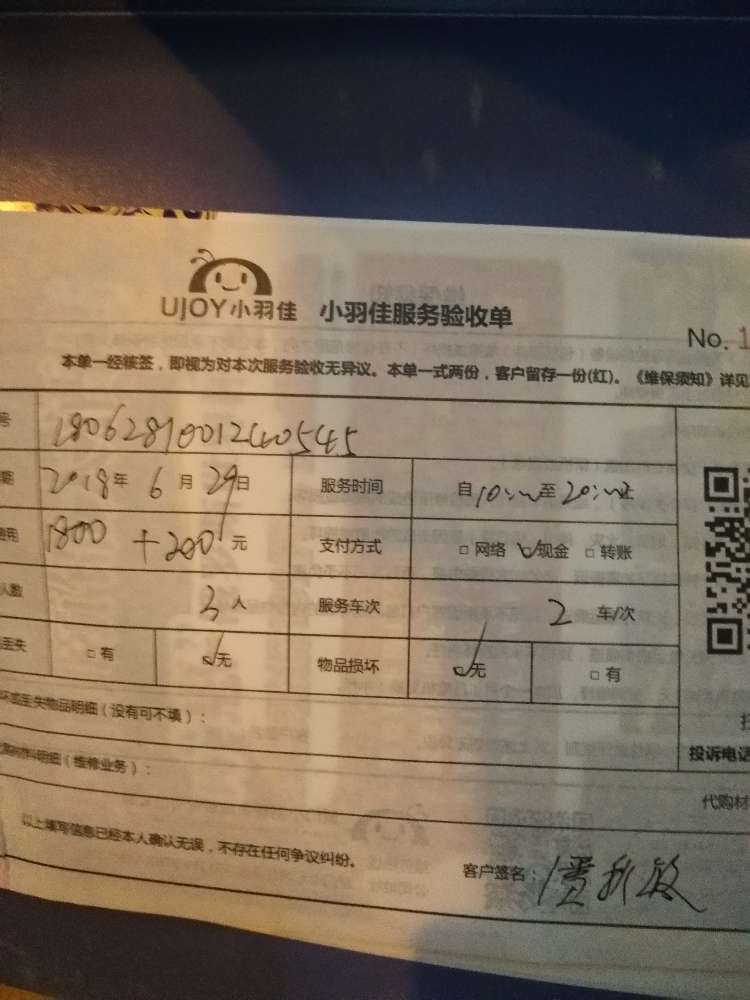 UJOY小羽佳 小羽佳服务验收单
No. 1
本单一经核签，即视为对本次服务验收无异议。本单一式两份，客户留存一份(红)。《维保须知》详见
号 18062810012440545
期 2018年 6 月 29日 服务时间 自10:00至20:00止
费用 1800 + 200 元 支付方式 □ 网络 ☑现金 □ 转账
人数 3人 服务车次 2 车/次
丢失 □ 有 ☑无 物品损坏 ☑无 □ 有
坏或丢失物品明细（没有可不填）：
投诉电话
材料明细（维修业务）：
代购材
以上填写信息已经本人确认无误，不存在任何争议纠纷。
客户签名：